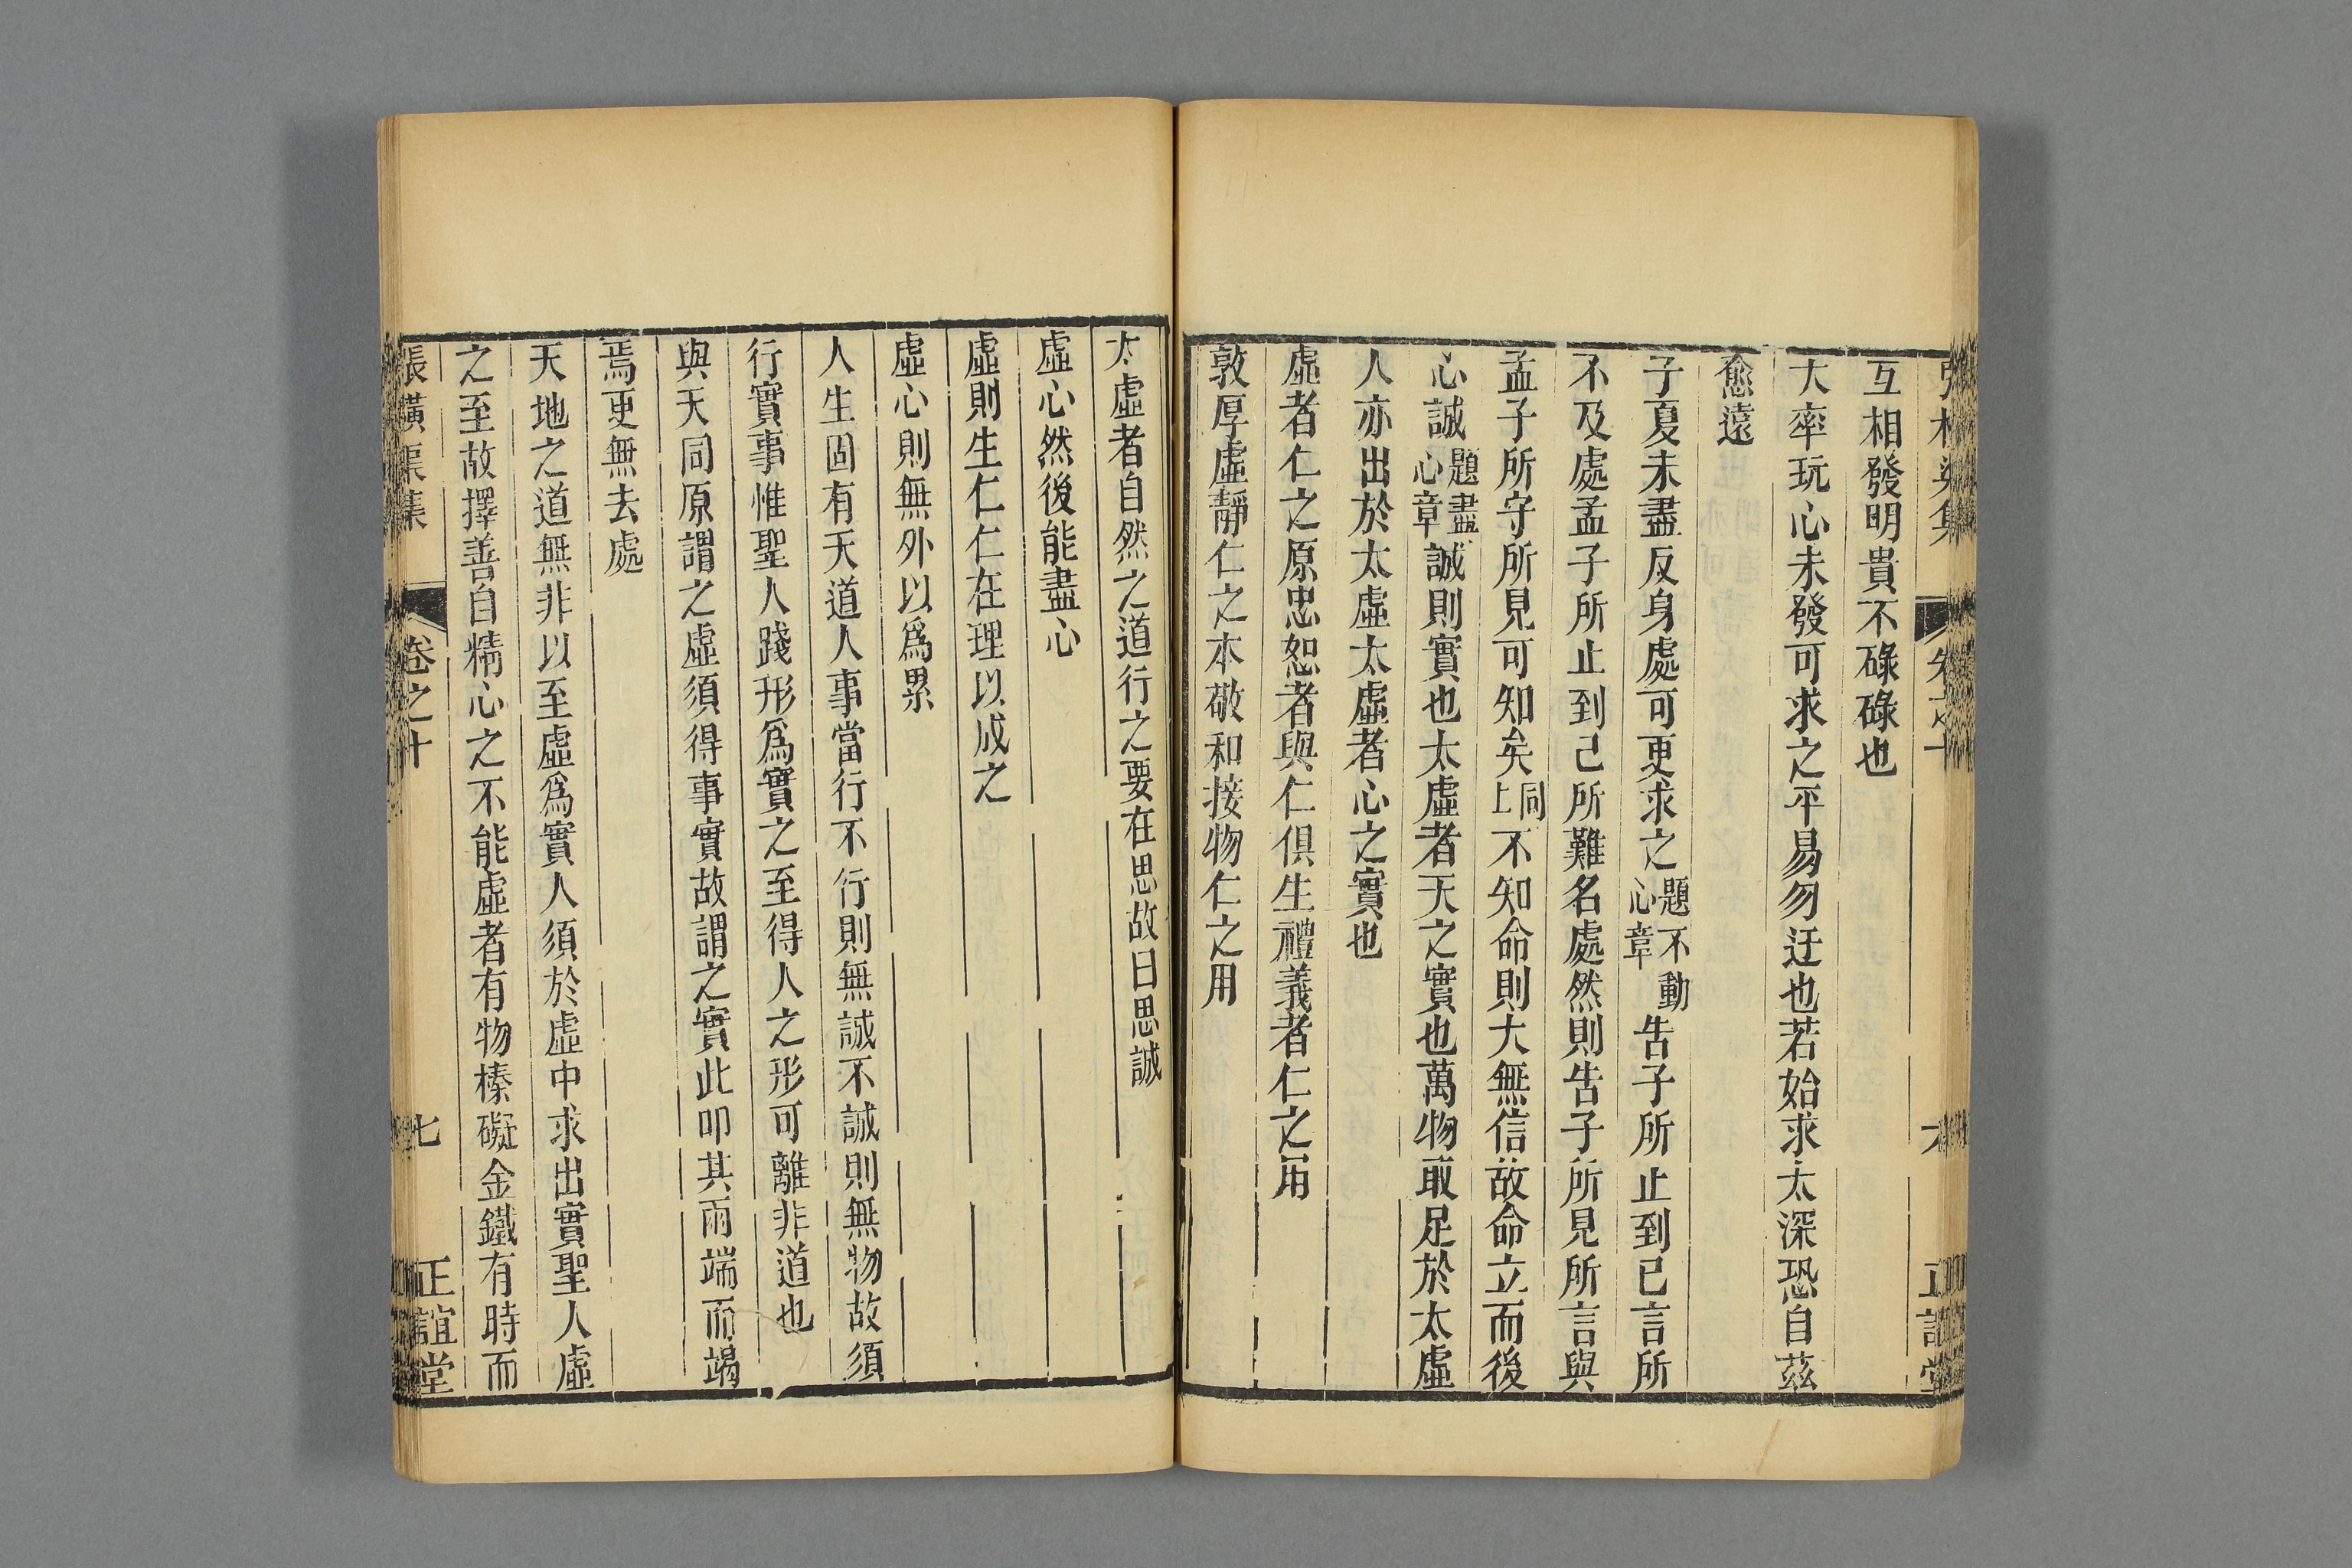 互相發明貴不碌碌也
大率玩心未發可求之平易勿迂也若始求太深恐自茲
愈遠
子夏未盡反身處可更求之題不動心章告子所止到已言所
不及處孟子所止到己所難名處然則告子所見所言與
孟子所守所見可知矣同上不知命則大無信故命立而後
心誠題盡心章誠則實也太虛者天之實也萬物取足於太虛
人亦出於太虛太虛者心之實也
虛者仁之原忠恕者與仁俱生禮義者仁之用
敦厚虛靜仁之本敬和接物仁之用
太虛者自然之道行之要在思故曰思誠
虛心然後能盡心
虛則生仁仁在理以成之
虛心則無外以爲累
人生固有天道人事當行不行則無誠不誠則無物故須
行實事惟聖人踐形爲實之至得人之形可離非道也
與天同原謂之虛須得事實故謂之實此叩其兩端而竭
焉更無去處
天地之道無非以至虛爲實人須於虛中求出實聖人虛
之至故擇善自精心之不能虛者有物榛礙金鐵有時而
張橫渠集 卷之十 七 正誼堂